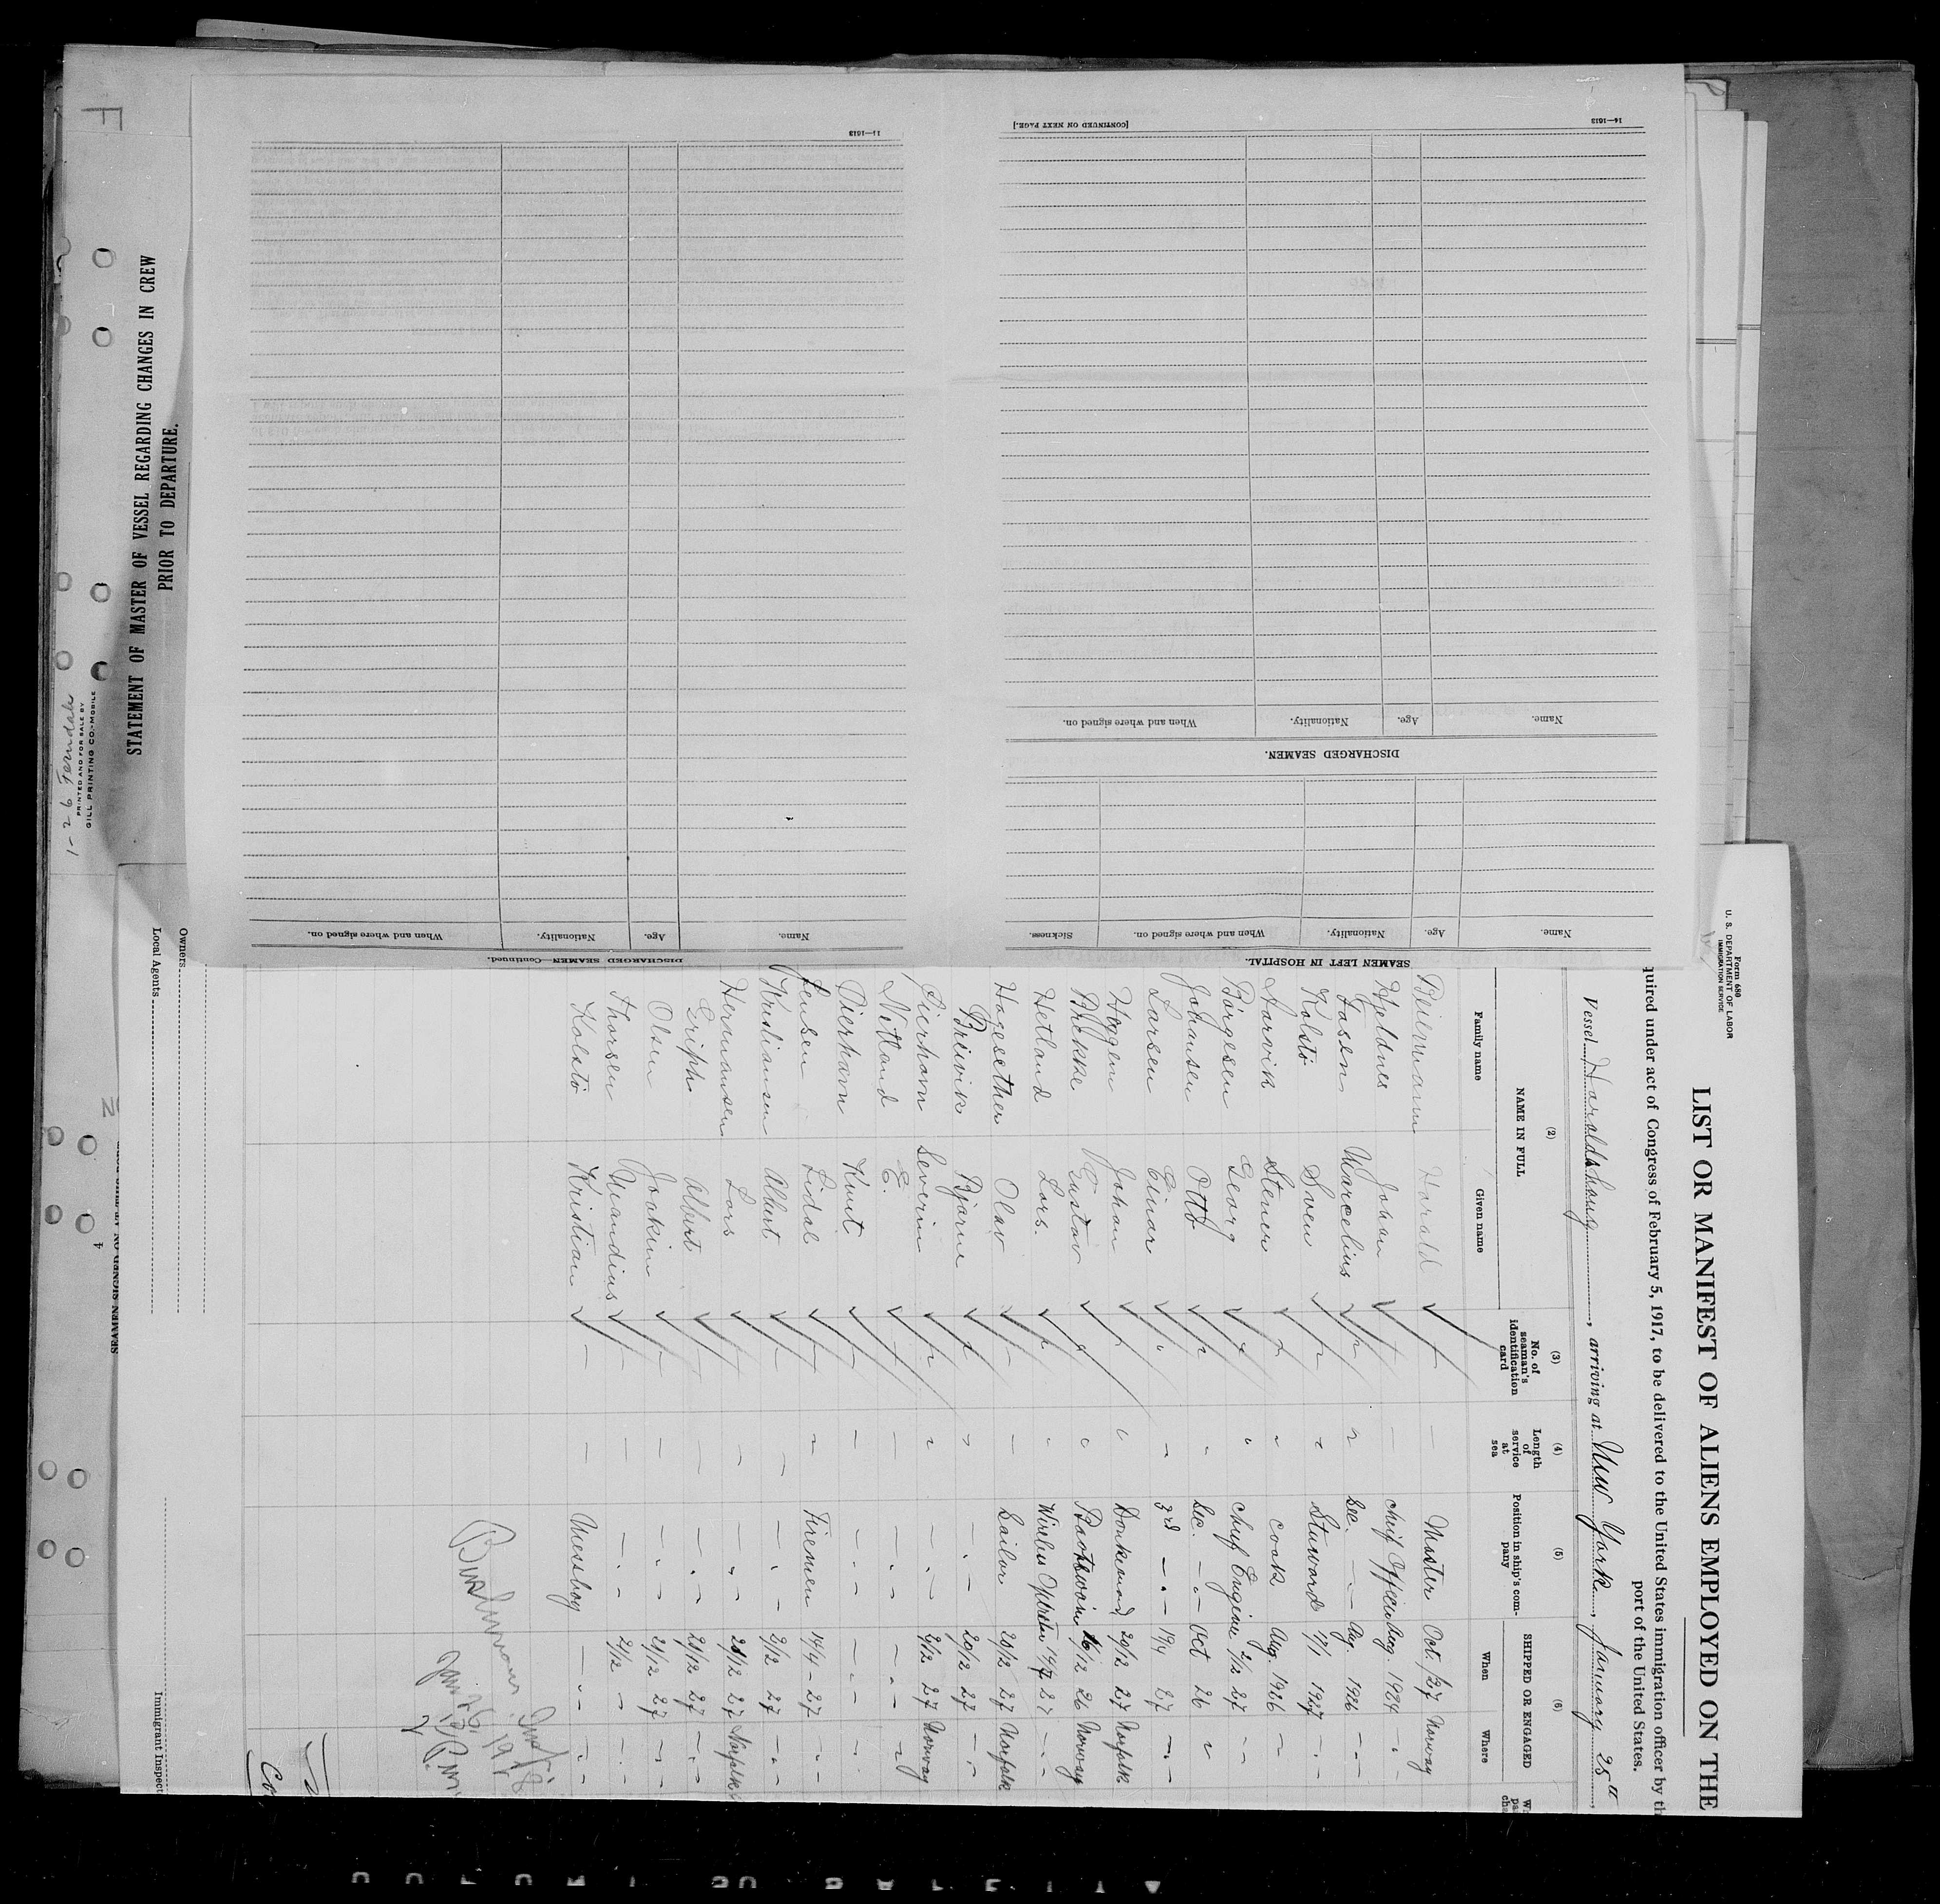 Form 680
U. S. DEPARTMENT OF LABOR
IMMIGRATION SERVICE
LIST OR MANIFEST OF ALIENS EMPLOYED ON THE
quired under act of Congress of February 5, 1917, to be delivered to the United States immigration officer by th
port of the United States.
Vessel Haroldshaug, arriving at New York, January 25th,
(2) (3) (4) (5) (6)
NAME IN FULL No. of seaman's identification card Length of service at sea Position in ship's company SHIPPED OR ENGAGED
Family name Given name When Where
Beiermann Harald — Master Oct. /27 Norway
Hjeldnes Johan — Chief Off. 1924
Fossen Marcelius Sec. Aug. 1926
Kolstö Sven Steward 17/1 1927
Aarvik Stener Cook Aug. 1926
Börgesen Georg Chief Engine 2/12 27
Johansen Otto Sec. Oct 26
Larsen Einar 3rd 19/4 27
Heggem Johan Donkeyman 20/12 27 Norfolk
Brekke Gustav Baatswain 16/12 26 Norway
Hetland Lars. Wireless 14/7 27
Hagesether Olav Sailor 20/12 27 Norfolk
Breivik Bjarne 20/12 27
Bierhorn Severin 2/12 27 Norway
Nitland E.
Bierhorn Knut
Jensen Lidal Firemen 14/4 - 27
Kristiansen Albert 2/12 27
Hermansen Lars 21/12 27 Norfolk
Griph Albert 21/12 27
Olsen Joakim 21/12 27
Thorsen Mandius 2/12
Kolstö Kristian Messboy
Jan 26, 19
Owners
Local Agents
Immigrant Inspect
STATEMENT OF MASTER OF VESSEL REGARDING CHANGES IN CREW
PRIOR TO DEPARTURE.
1-26 Ferndale
PRINTED AND FOR SALE BY
GILL PRINTING CO.-MOBILE
4
SEAMEN LEFT IN HOSPITAL.
Name. Age. Nationality. When and where signed on. Sickness.
DISCHARGED SEAMEN.
Name. Age. Nationality. When and where signed on.
14—1613 [CONTINUED ON NEXT PAGE.]
DISCHARGED SEAMEN—Continued.
Name. Age. Nationality. When and where signed on.
11—1613